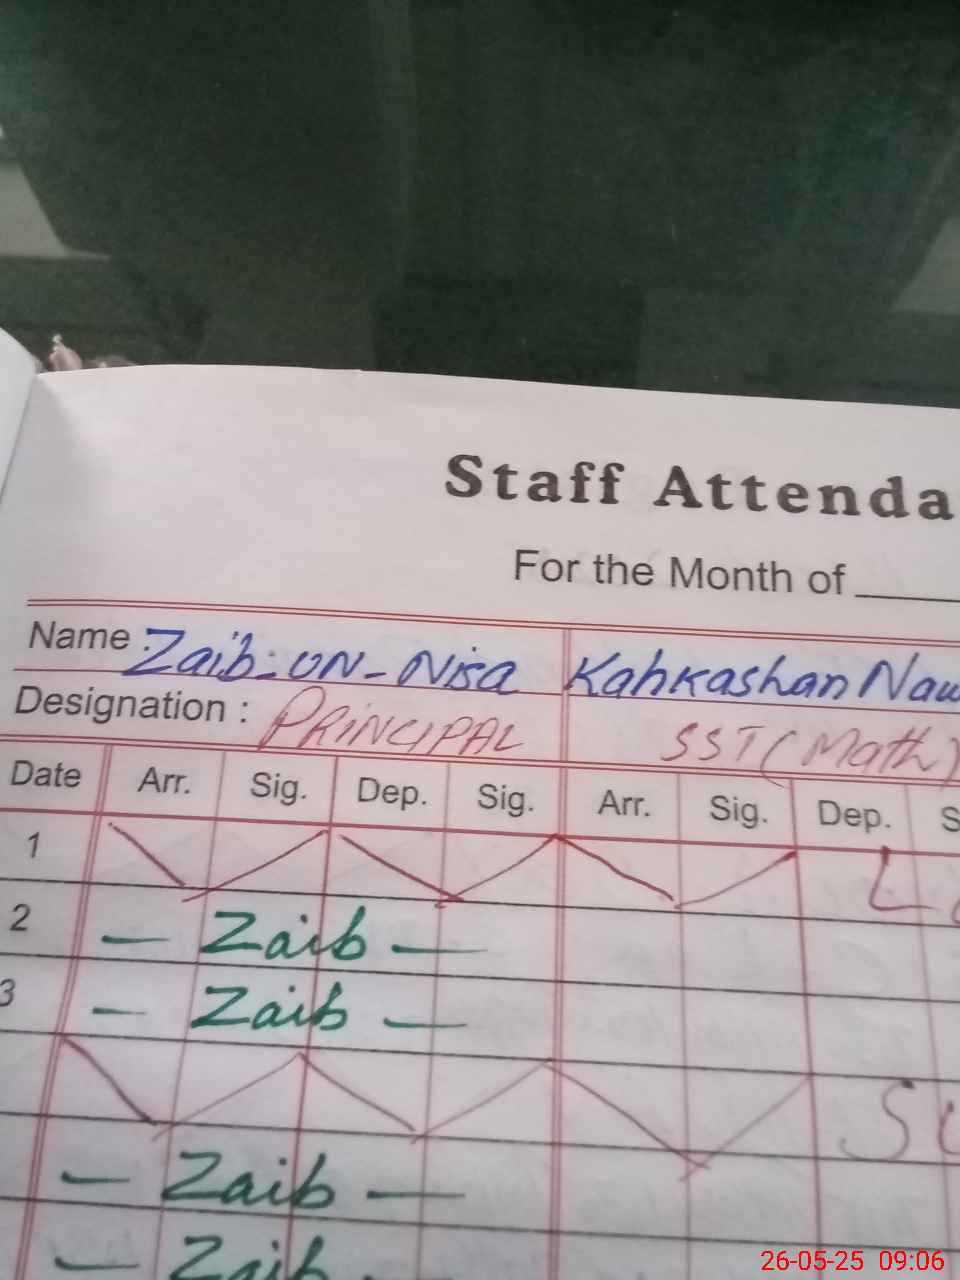 Staff Attenda
For the Month of
Name : Zaib-un-Nisa Kahkashan Naw
Designation : PRINCIPAL SST (Math)
Date Arr. Sig. Dep. Sig. Arr. Sig. Dep. S
1 L
2 — Zaib —
3 — Zaib —
Su
— Zaib —
— Zaib
26-05-25 09:06